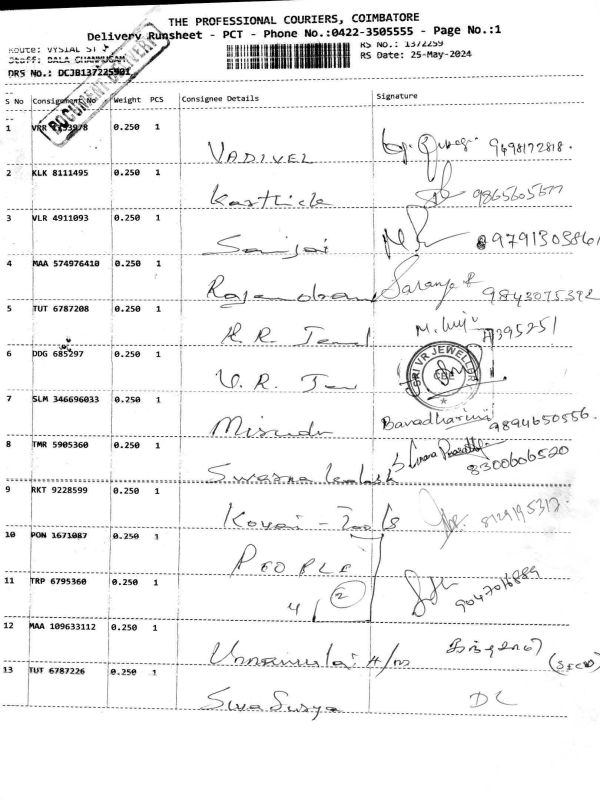 THE PROFESSIONAL COURIERS, COIMBATORE
Delivery Runsheet - PCT - Phone No.:0422-3505555 - Page No.:1
Route: VYSIAL ST
RS No.: 1372259
Staff: BALA SHANMUGAM
RS Date: 25-May-2024
DRS No.: DCJB137225901
DOCUMENT DELIVERY
S No Consignment No Weight PCS Consignee Details Signature
1 VRR 0.250 1
VADIVEL 9498172818.
2 KLK 8111495 0.250 1
Karthick 9865605677
3 VLR 4911093 0.250 1
Sanjai 9791303861
4 MAA 574976410 0.250 1
Rajendran Saranya R 9843075392
5 TUT 6787208 0.250 1
K. R. M.
6 DDG 685297 0.250 1
V. R.
SRI VR JEWELLERY
CBE
7 SLM 346696033 0.250 1
Bavadharini 9894650556.
8 TMR 5905360 0.250 1
Swarna 8300606520
9 RKT 9228599 0.250 1
Kovai - Tools 8129195317
10 PON 1671087 0.250 1
PEOPLE
11 TRP 6795360 0.250 1
4 2 9047016889
12 MAA 109633112 0.250 1
Unnamulai H/m
13 TUT 6787226 0.250 1
Siva Surya DC